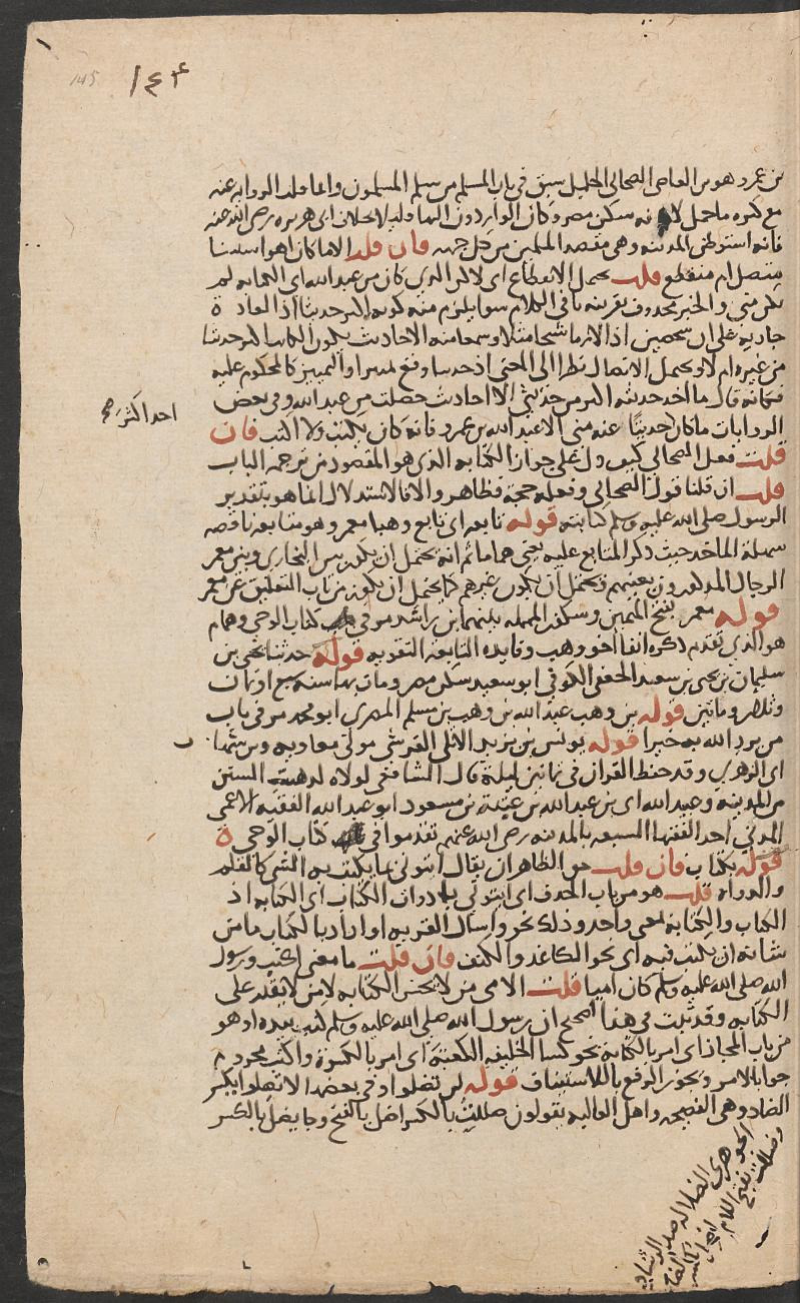 ١٤٤
145
بن عمرو هو بن العاصي الصحابي الجليل سبق في باب المسلم من سلم المسلمون وانما قلت الرواية عنه
مع كثرة ما حمل لانه سكن مصر وكان الواردون اليها قليلا بخلاف ابي هريرة رضي الله عنه
فانه استوطن المدينة وهي مقصد المسلمين من كل جهة فان قلت الا ما كان اهو استثنا
متصل ام منقطع قلت يحتمل الانقطاع اي لاكن الذي كان من عبد الله اي الكتابة لم
تكن مني والخبر محذوف بقرينة باقي الكلام سوا يلزم منه كونه اكثر حديثا اذ العادة
جارية على ان شخصين اذا لازما شيخا مثلا وسمعا منه الاحاديث يكون الكاتب اكثر حديثا
من غيره ام لا ويحتمل الاتصال نظرا الى المعنى اذ حديثا وقع تمييزا والتمييز كالمحكوم عليه
فكانه قال ما احد حديثه اكثر من حديثي الا احاديث حصلت من عبد الله وفي بعض
احد اكثر صح
الروايات ما كان احد حديثا عنه مني الا عبد الله بن عمرو فانه كان يكتب ولا اكتب فان
قلت فعل الصحابي كيف دل على جواز الكتابة الذي هو المقصود من ترجمة الباب
قلت ان قلنا قول الصحابي وفعله حجة فظاهر والا فالاستدلال انما هو بتقدير
الرسول صلى الله عليه وسلم كتابته قوله تابعه اي تابع وهبا معمر وهو متابعة ناقصة
سهلة الماخذ حيث ذكر المتابع عليه يعني هماما ثم انه يحتمل ان يكون بين البخاري وبين معمر
الرجال المذكورون بعينهم ويحتمل ان يكون غيرهم كما يحتمل ان يكون من باب التعليق عن معمر
قوله معمر بفتح الميمين وسكون المهملة بينهما بن راشد مر في كتاب الوحي وهمام
هو الذي تقدم ذكره انفا اخو وهب وفايدة المتابعة التقوية قوله حدثنا يحيى بن
سليمان بن يحيى بن سعيد الجعفي الكوفي ابو سعيد سكن مصر ومات بها سنة سبع او ثمان
وثلاثين وماتين قوله بن وهب عبد الله بن وهب بن مسلم المصري ابو محمد مر في باب
من يرد الله به خيرا قوله يونس بن يزيد الايلي القرشي مولى معاوية وبن شهاب
اي الزهري وقد حفظ القران في ثمانين ليلة قال الشافعي لولاه لذهبت السنن
من المدينة وعبيد الله اي بن عبد الله بن عتبة بن مسعود ابو عبد الله الفقيه الاعمى
المدني احد الفقها السبعة بالمدينة رضي الله عنهم تقدموا في كتاب الوحي
قوله بكتاب فان قلت حق الظاهر ان يقال ايتوني بما يكتب به الشي كالقلم
والدواة قلت هو من باب الحذف اي ايتوني بادوات الكتاب اي الكتابة اذ
الكتاب والكتابة بمعنى واحد وذلك نحو واسال القرية او اراد بالكتاب ما من
شانه ان يكتب فيه اي نحو الكاغد والكتف فان قلت ما معنى اكتب ورسول
الله صلى الله عليه وسلم كان اميا قلت الامي من لا يحسن الكتابة لا من لا يقدر على
الكتابة وقد ثبت في هذا الصحيح ان رسول الله صلى الله عليه وسلم كتب بيده او هو
من باب المجاز اي امر بالكتابة نحو كسا الخليفة الكعبة اي امر بالكسوة واكتب مجزوم
جوابا للامر ويجوز الرفع بالاستيناف قوله لن تضلوا وفي بعضها لا تضلوا بكسر
الضاد وهي الفصيحة واهل العالية يقولون ضللت بالكسر اضل بالفتح وجا يضل بالكسر
الجوهري الضلالة ضد الرشاد
وضللت بفتح اللام